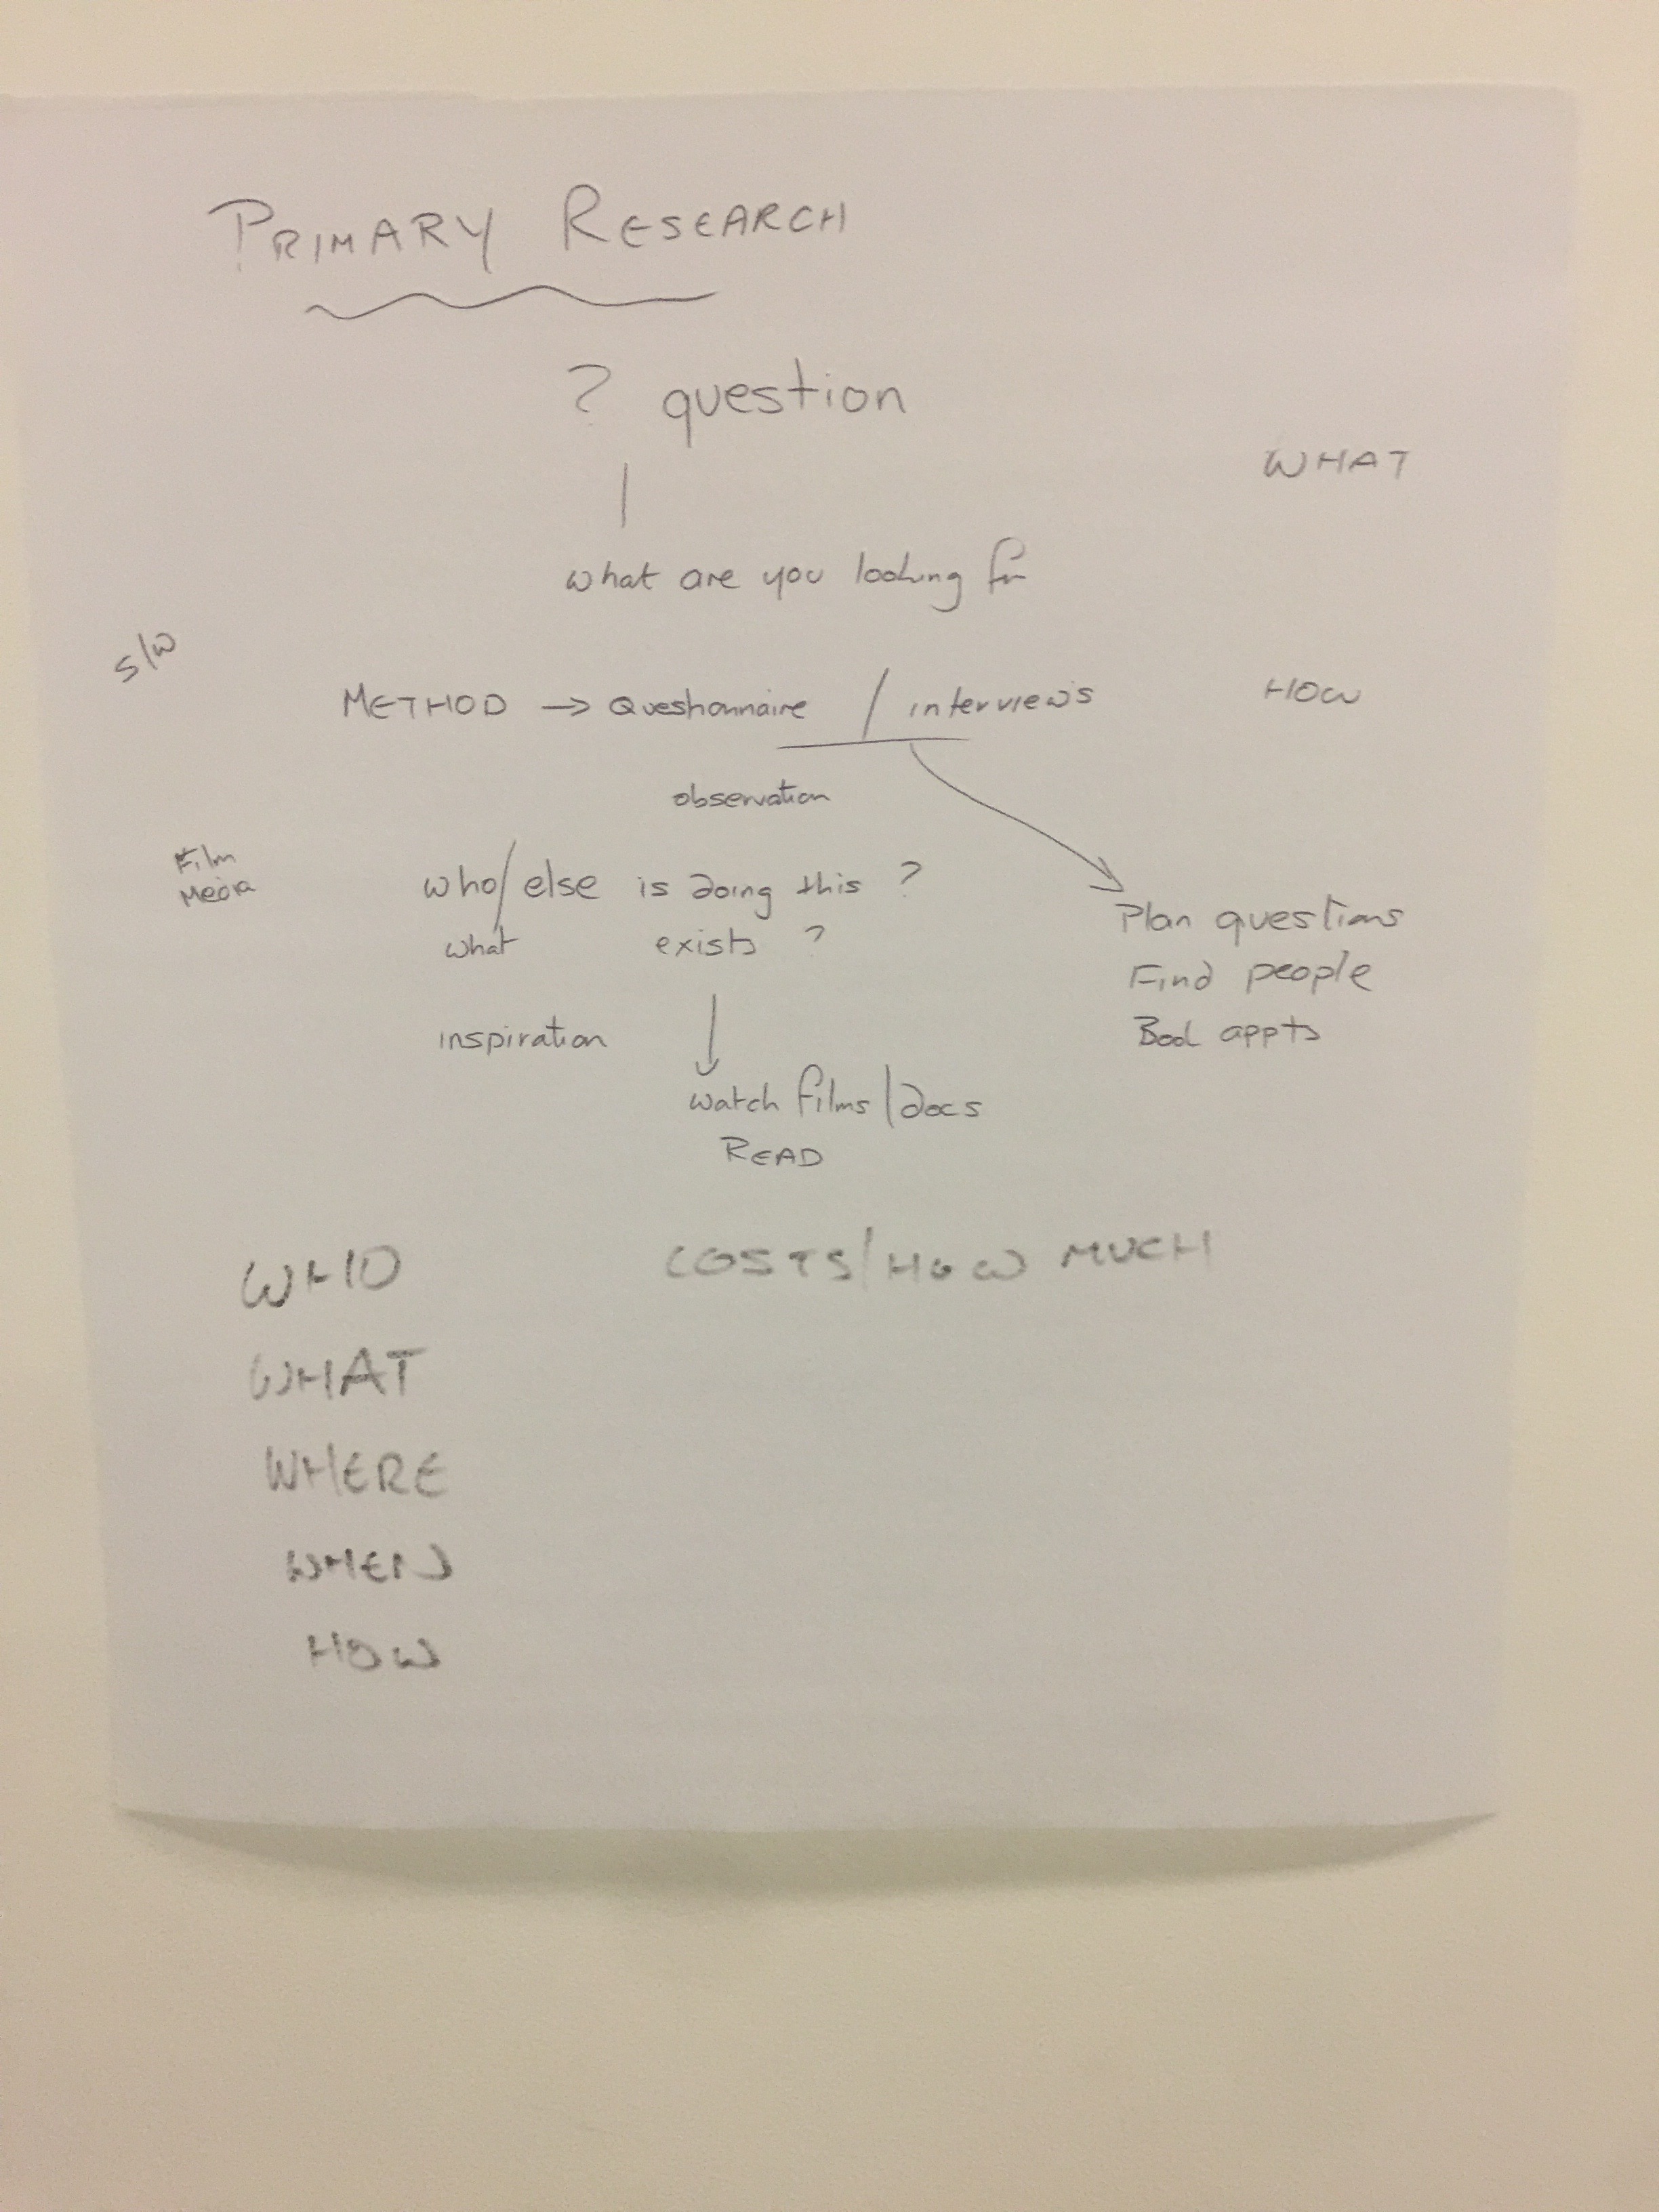 PRIMARY RESEARCH
? question
WHAT
what are you looking for
S/W
METHOD → Questionnaire / interviews
HOW
observation
Film
Media
who/else is doing this ?
what exists ?
Plan questions
Find people
Book appts
inspiration
watch films/docs
READ
WHO
COSTS/HOW MUCH
WHAT
WHERE
WHEN
HOW